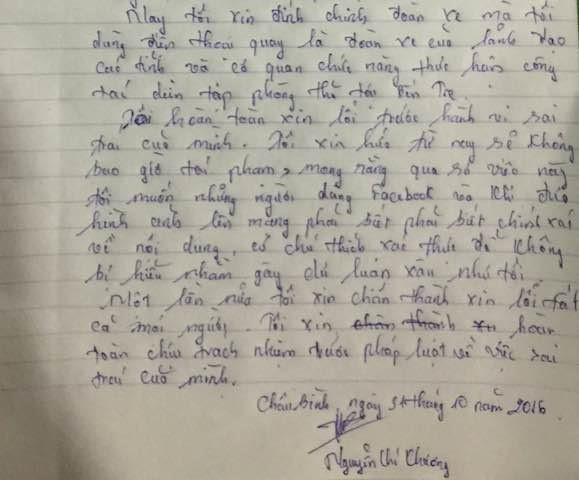 Nay tôi xin đính chính đoàn xe mà tôi
dùng điện thoại quay là đoàn xe của lãnh đạo
các tỉnh và cơ quan chức năng thực hiện công
tác diễn tập phòng thủ tại Bến Tre.
Tôi hoàn toàn xin lỗi trước hành vi sai
trai cuả mình. Tôi xin hứa từ nay sẽ không
bao giờ tái phạm, mong rằng qua sự việc này
tôi muốn những người dùng Facebook và khi đưa
hình ảnh lên mạng phải biết chính xác
về nội dung, có chú thích xác thực để không
bị hiểu nhầm gây dư luận xấu như tôi
Một lần nữa tôi xin chân thành xin lỗi tất
cả mọi người. Tôi xin chân thành xin hoàn
toàn chịu trách nhiệm trước pháp luật về việc sai
trái cuả mình.
Châu Bình, ngày 31 tháng 10 năm 2016
Nguyễn Chí Khương